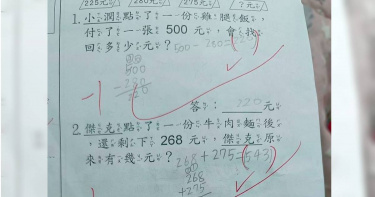 225元 280元 275元 7元
1.小潤點了一份雞腿飯，
付了一張 500 元，會找
回多少元？500－280＝(
500
-280
220
-1
答：220元
2.傑克點了一份牛肉麵後
，還剩下 268 元，傑克原
來有幾元？268＋275＝(543)
268
+275